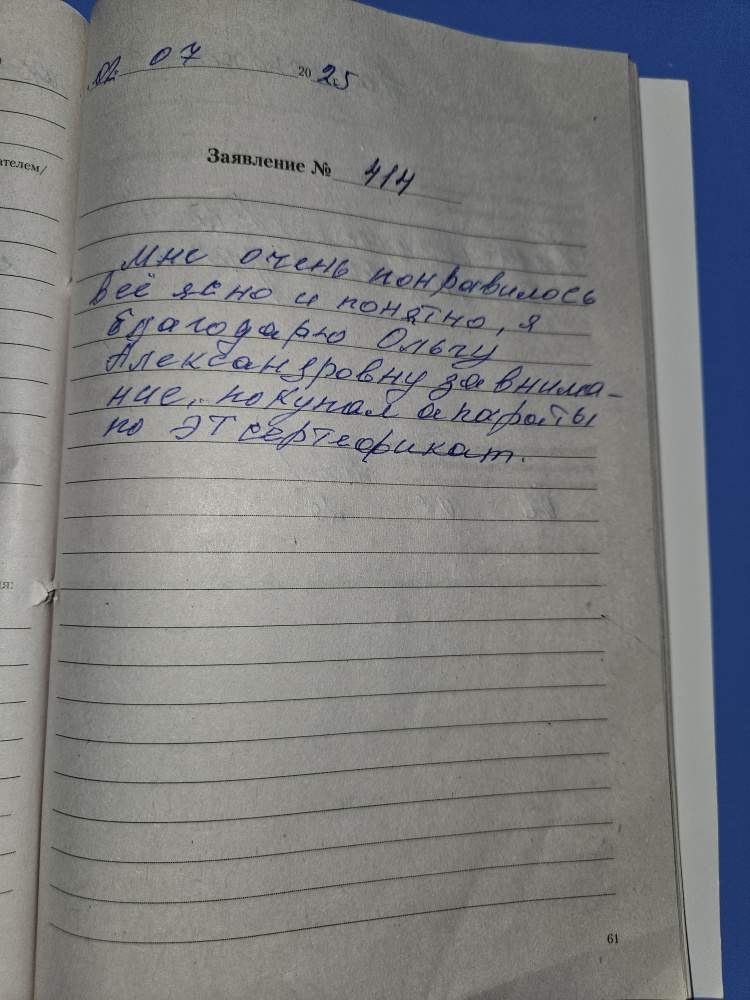 02. 07 2025
ателем/
Заявление № 414
Мне очень понравилось
всё ясно и понятно, я
благодарю Ольгу
Александровну за внима-
ние, покупал апараты
по ЭТ сертефикат.
ия:
61